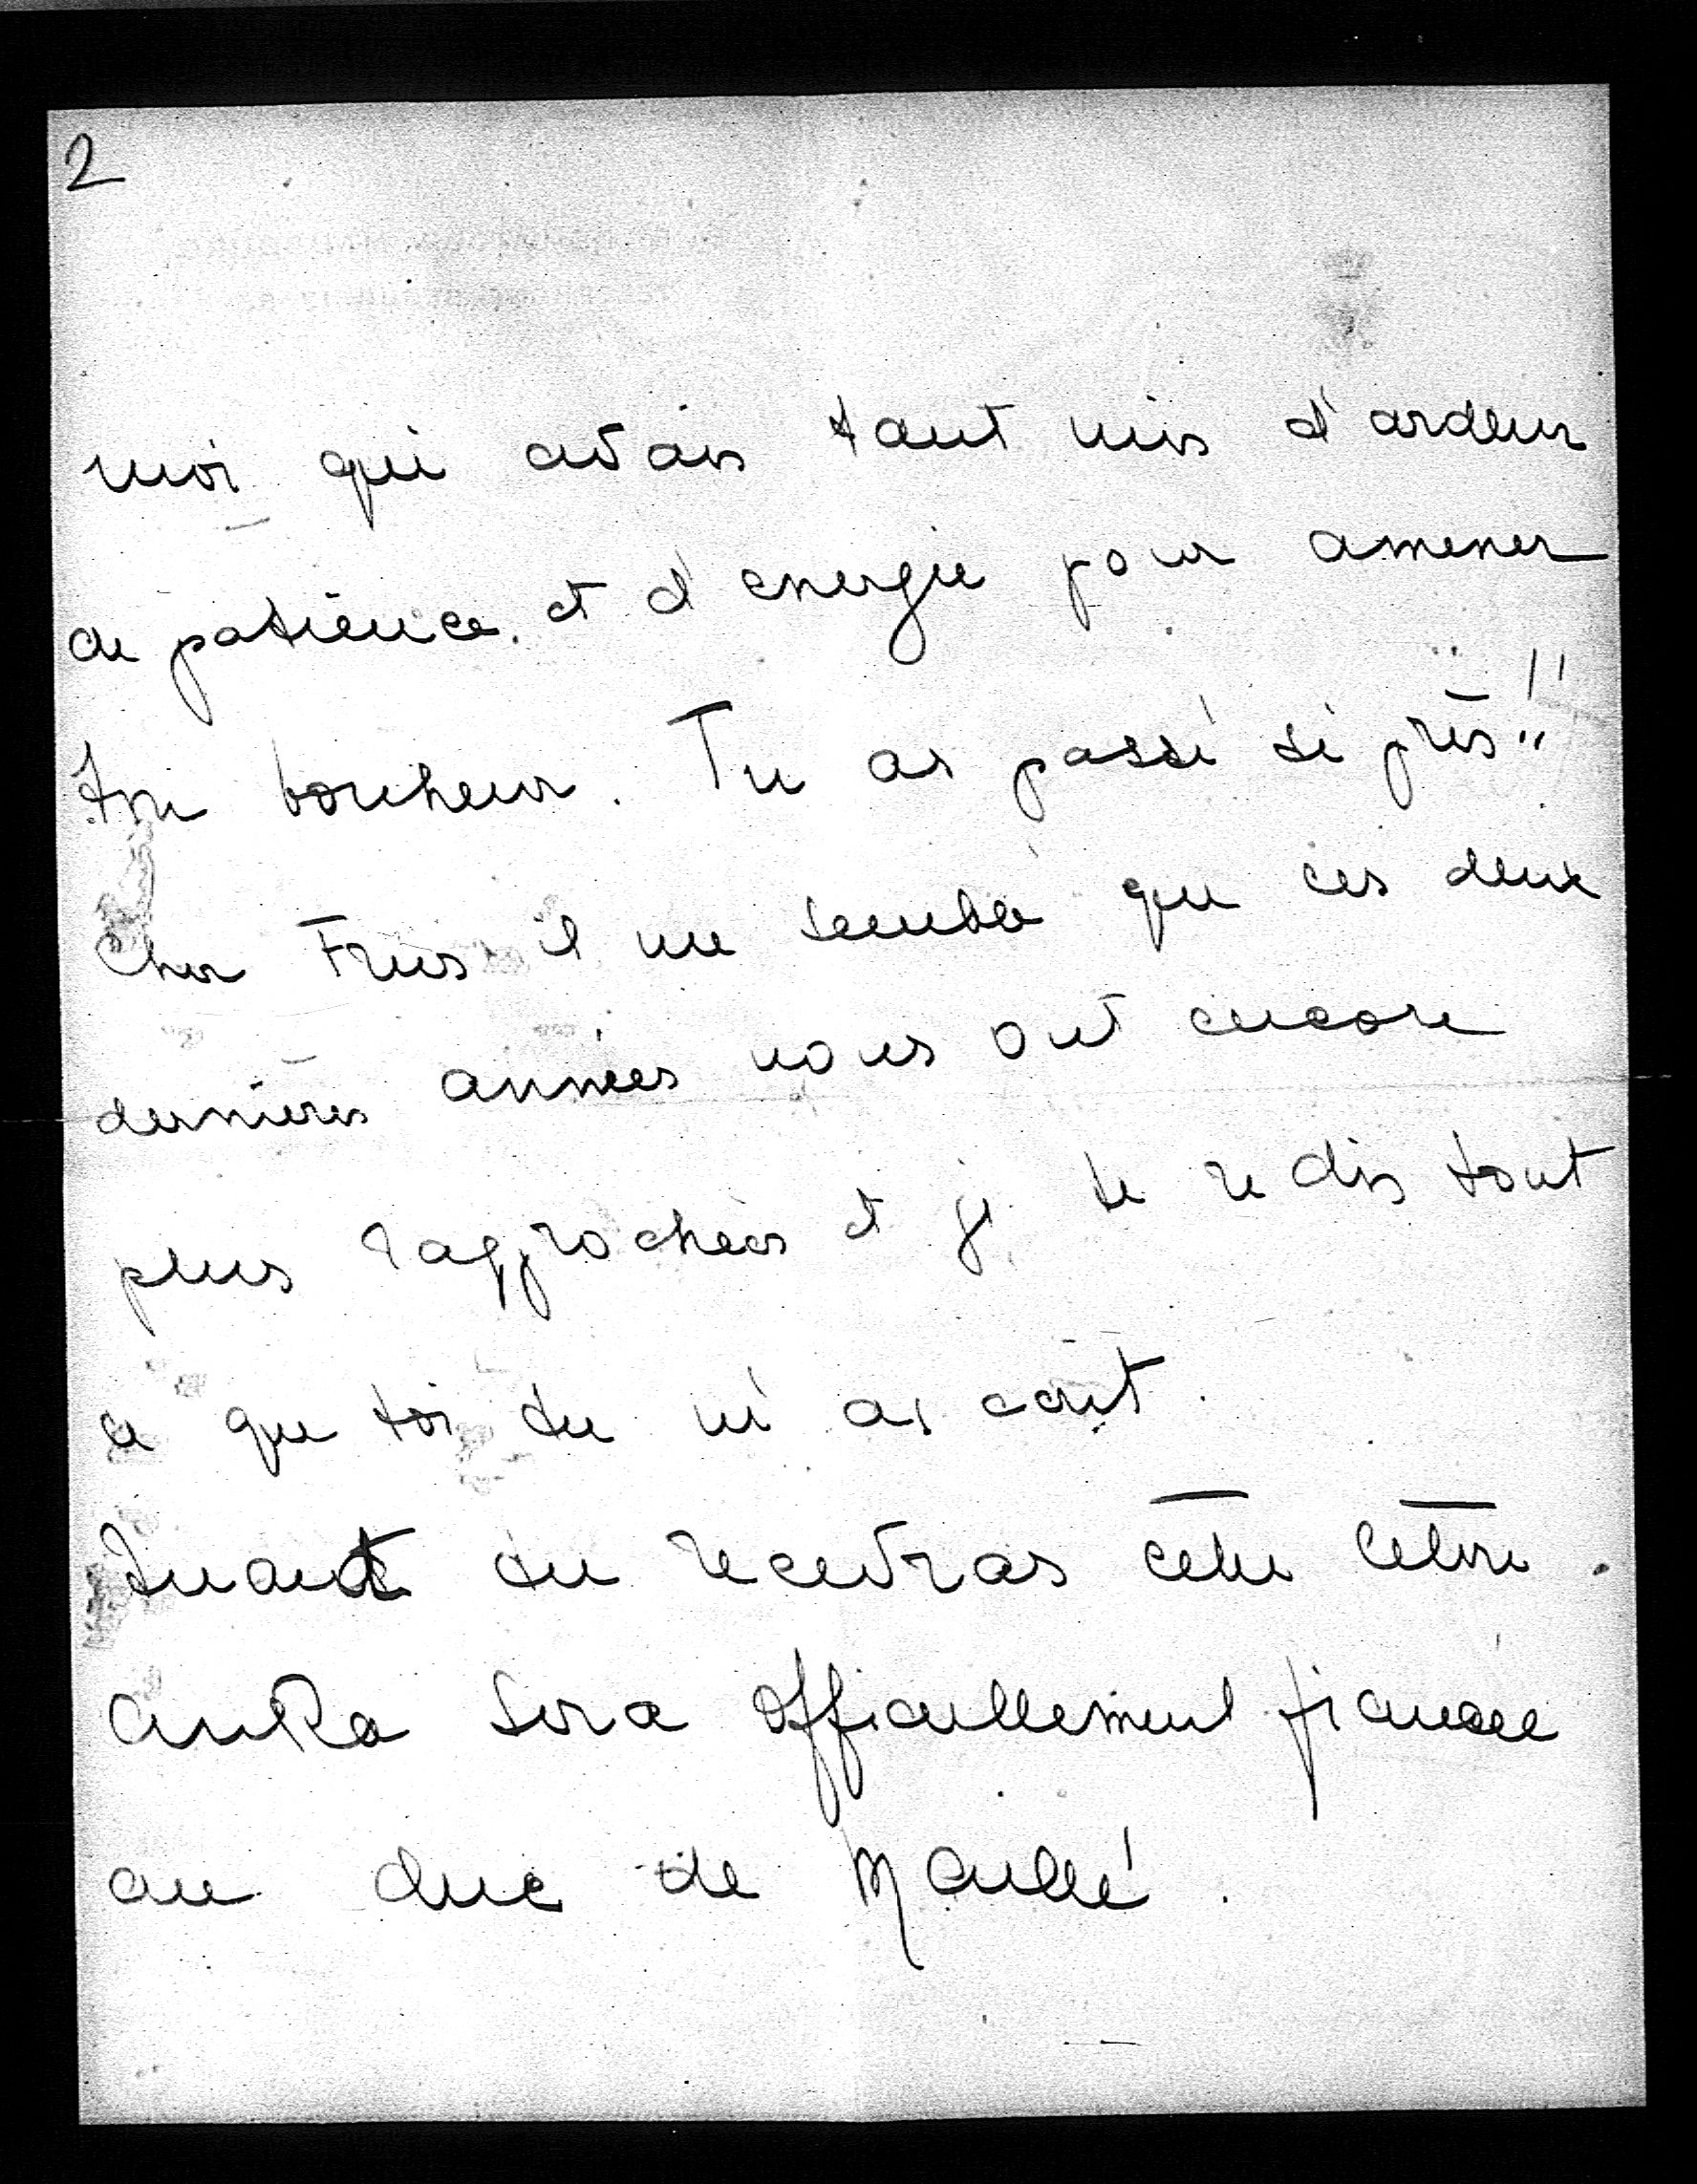 2
moi qui avais tant mis d'ardeur
de patience. et d'energie pour amener
ton bonheur. Tu as passé si près!!
Cher Frus il me semble que ces deux
dernières années nous ont encore
plus rapprochées et je te redis tout
ce que toi tu m'as écrit.
Quand tu recevras cette lettre.
Anka sera officiellement fiancée
au duc de Maillé.